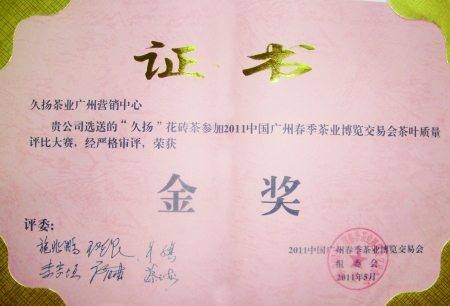 证书
久扬茶业广州营销中心
贵公司选送的“久扬”花砖茶参加2011中国广州春季茶业博览交易会茶叶质量
评比大赛，经严格审评，荣获
金奖
评委：
2011中国广州春季茶业博览交易会
组委会
2011年5月